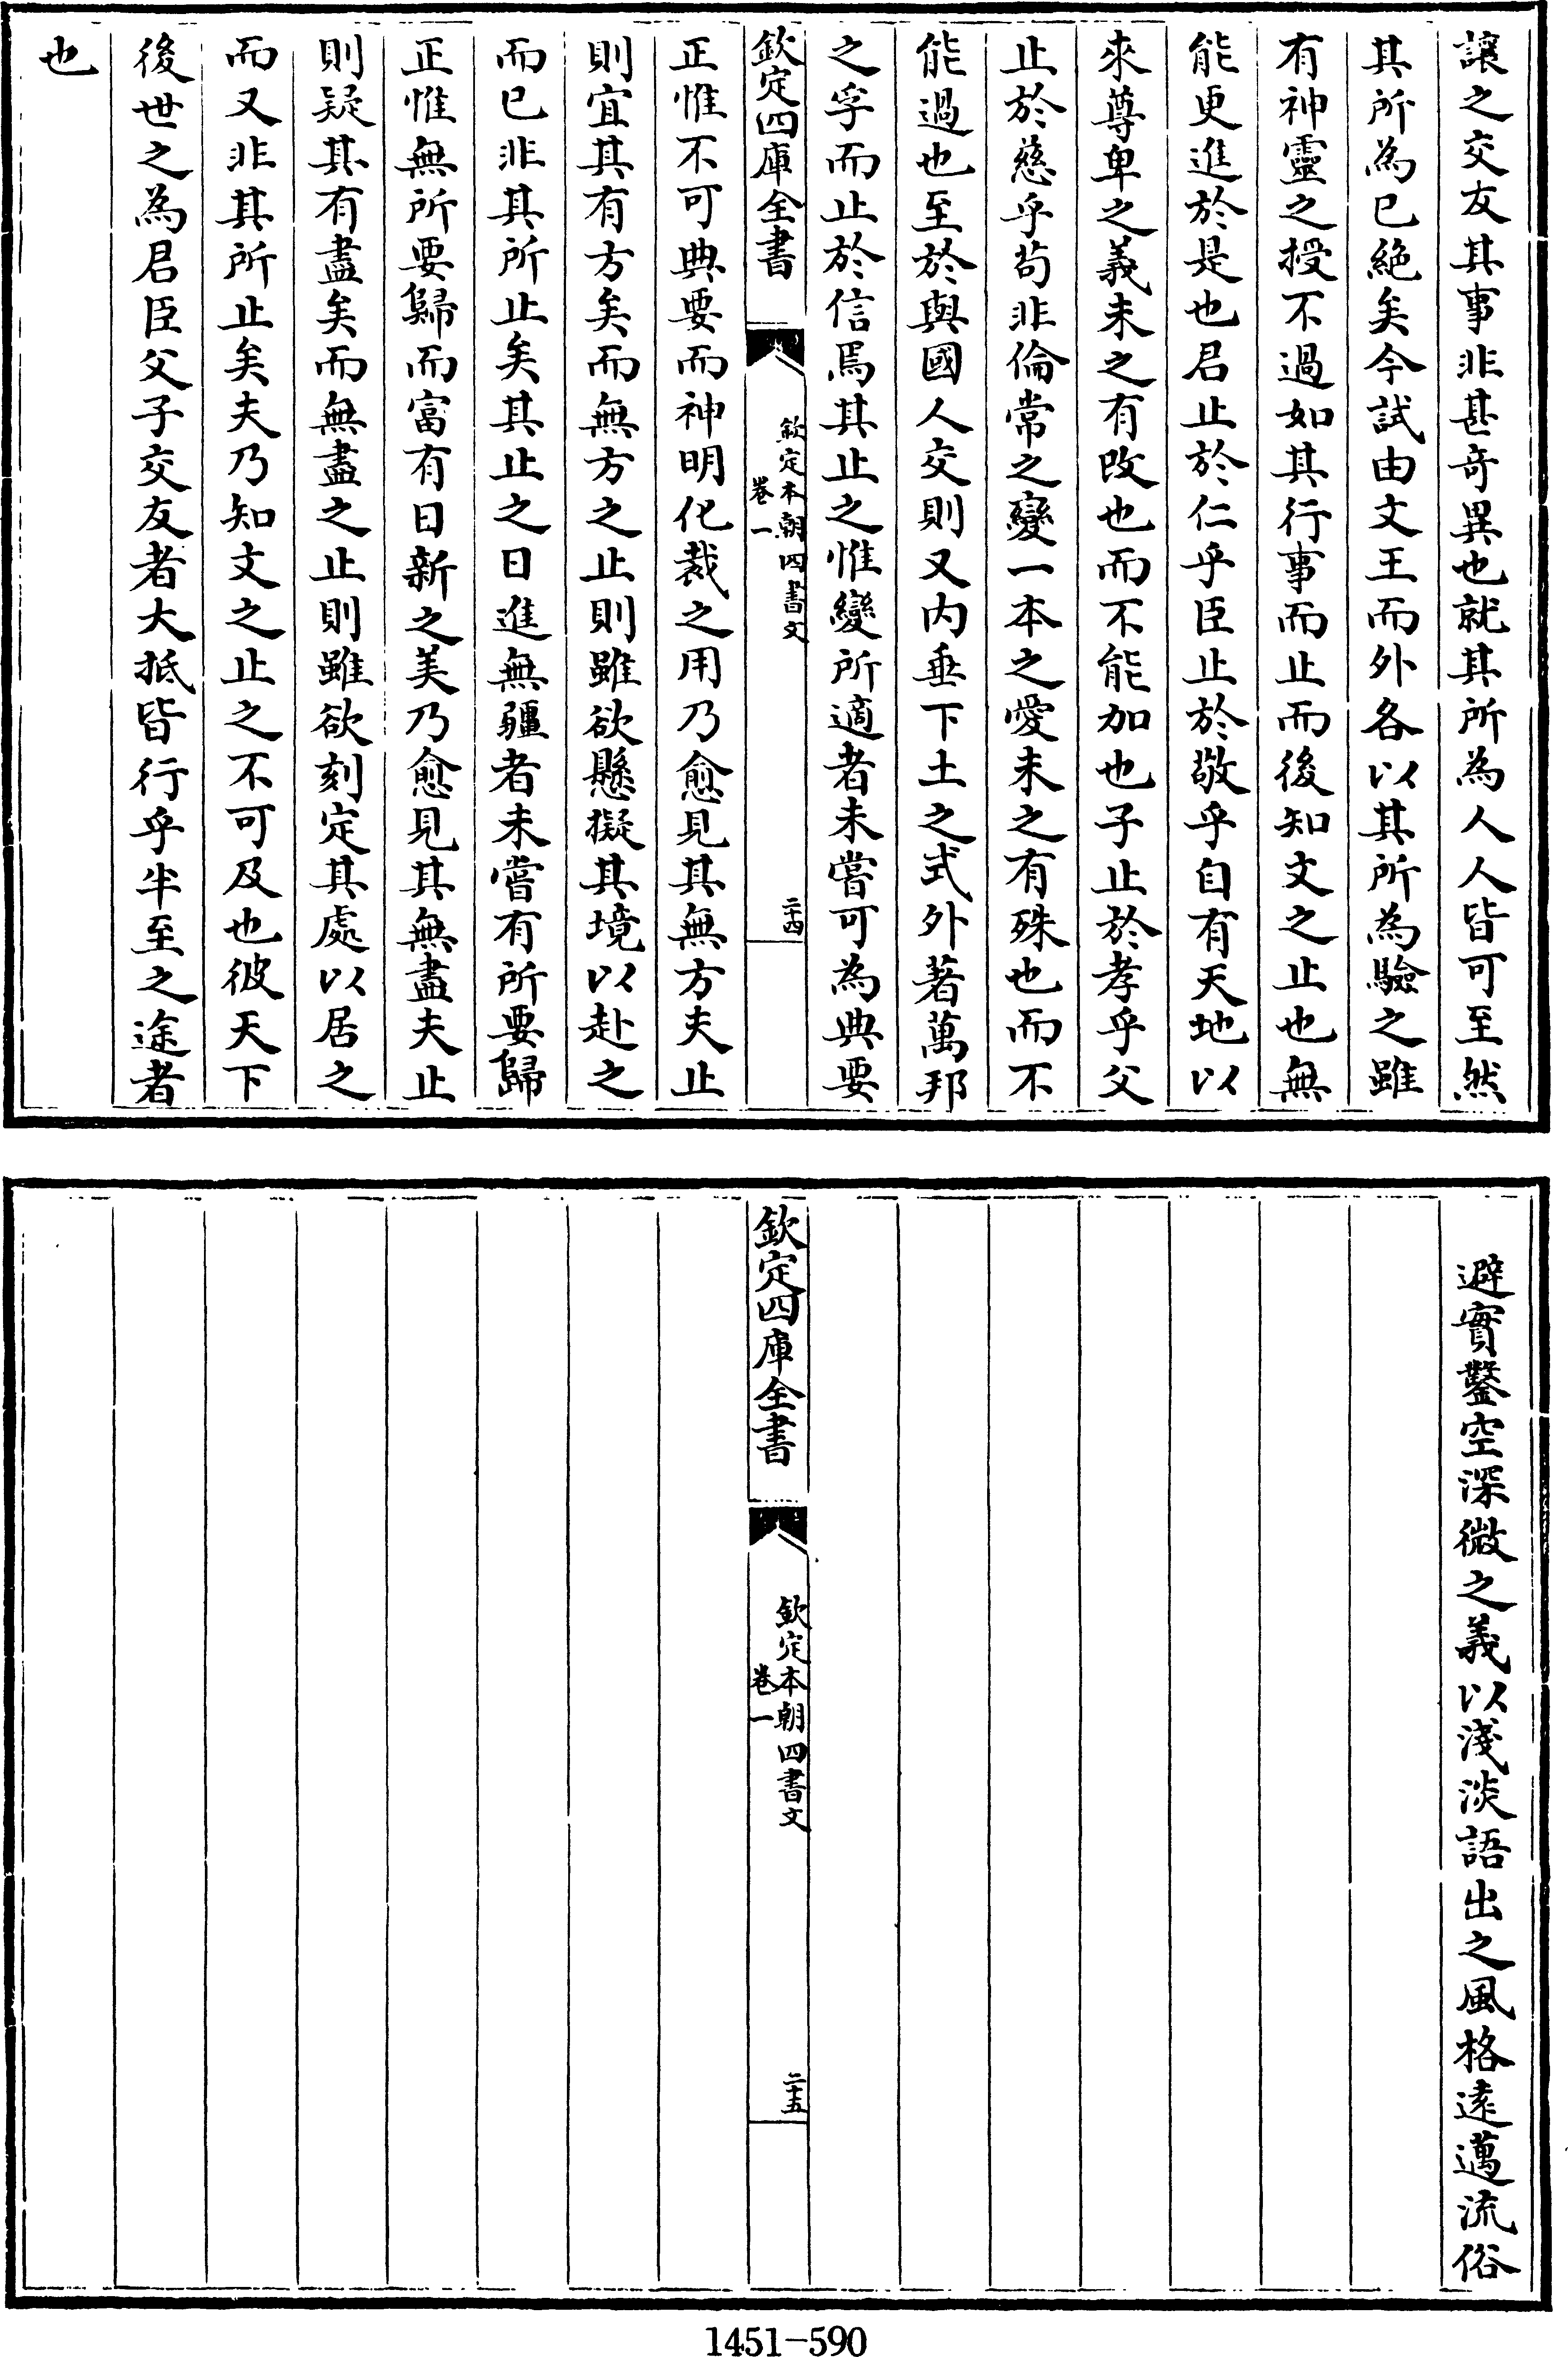 讓之交友其事非甚奇異也就其所為人人皆可至然
其所為已絕矣今試由文王而外各以其所為驗之雖
有神靈之授不過如其行事而止而後知文之止也無
能更進於是也君止於仁乎臣止於敬乎自有天地以
來尊卑之義未之有改也而不能加也子止於孝乎父
止於慈乎茍非倫常之變一本之愛未之有殊也而不
能過也至於與國人交則又内垂下土之式外著萬邦
之孚而止於信焉其止之惟變所適者未嘗可為典要
欽定四庫全書
欽定本朝四書文
卷一
二十四
正惟不可典要而神明化裁之用乃愈見其無方夫止
則宜其有方矣而無方之止則雖欲懸擬其境以赴之
而已非其所止矣其止之日進無疆者未嘗有所要歸
正惟無所要歸而富有日新之美乃愈見其無盡夫止
則疑其有盡矣而無盡之止則雖欲刻定其處以居之
而又非其所止矣夫乃知文之止之不可及也彼天下
後世之為君臣父子交友者大抵皆行乎半至之途者
也
避實鑿空深微之義以淺淡語出之風格遠邁流俗
欽定四庫全書
欽定本朝四書文
卷一
二十五
1451-590